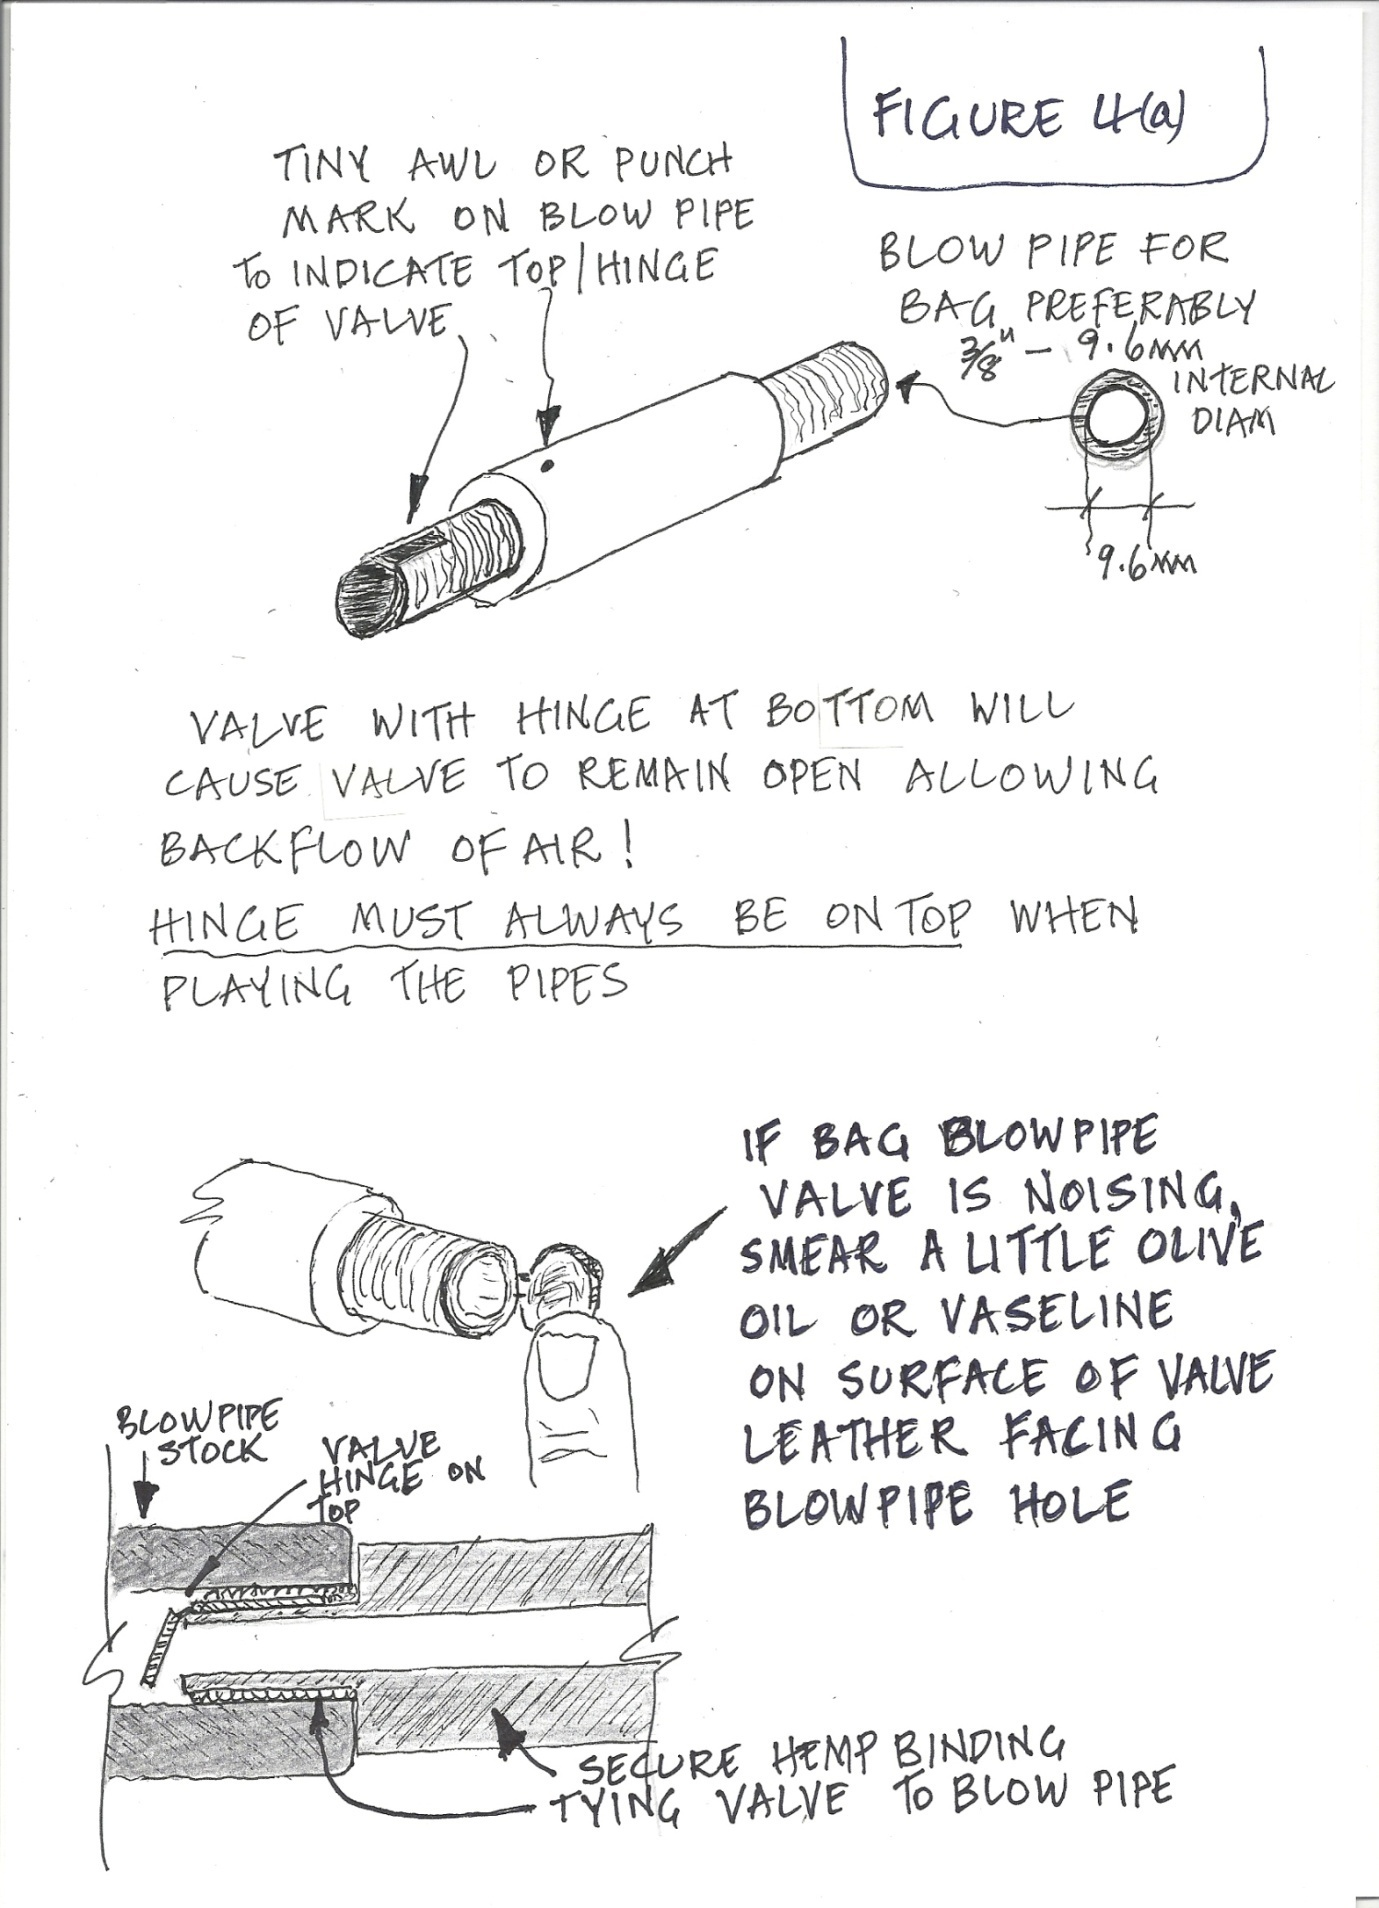 FIGURE 4(a)
TINY AWL OR PUNCH
MARK ON BLOW PIPE
TO INDICATE TOP/HINGE
OF VALVE
BLOW PIPE FOR
BAG PREFERABLY
3/8" - 9.6mm
INTERNAL
DIAM
9.6mm
VALVE WITH HINGE AT BOTTOM WILL
CAUSE VALVE TO REMAIN OPEN ALLOWING
BACKFLOW OF AIR!
HINGE MUST ALWAYS BE ON TOP WHEN
PLAYING THE PIPES
IF BAG BLOWPIPE
VALVE IS NOISING,
SMEAR A LITTLE OLIVE
OIL OR VASELINE
ON SURFACE OF VALVE
LEATHER FACING
BLOWPIPE HOLE
BLOWPIPE
STOCK
VALVE
HINGE ON
TOP
SECURE HEMP BINDING
TYING VALVE TO BLOW PIPE